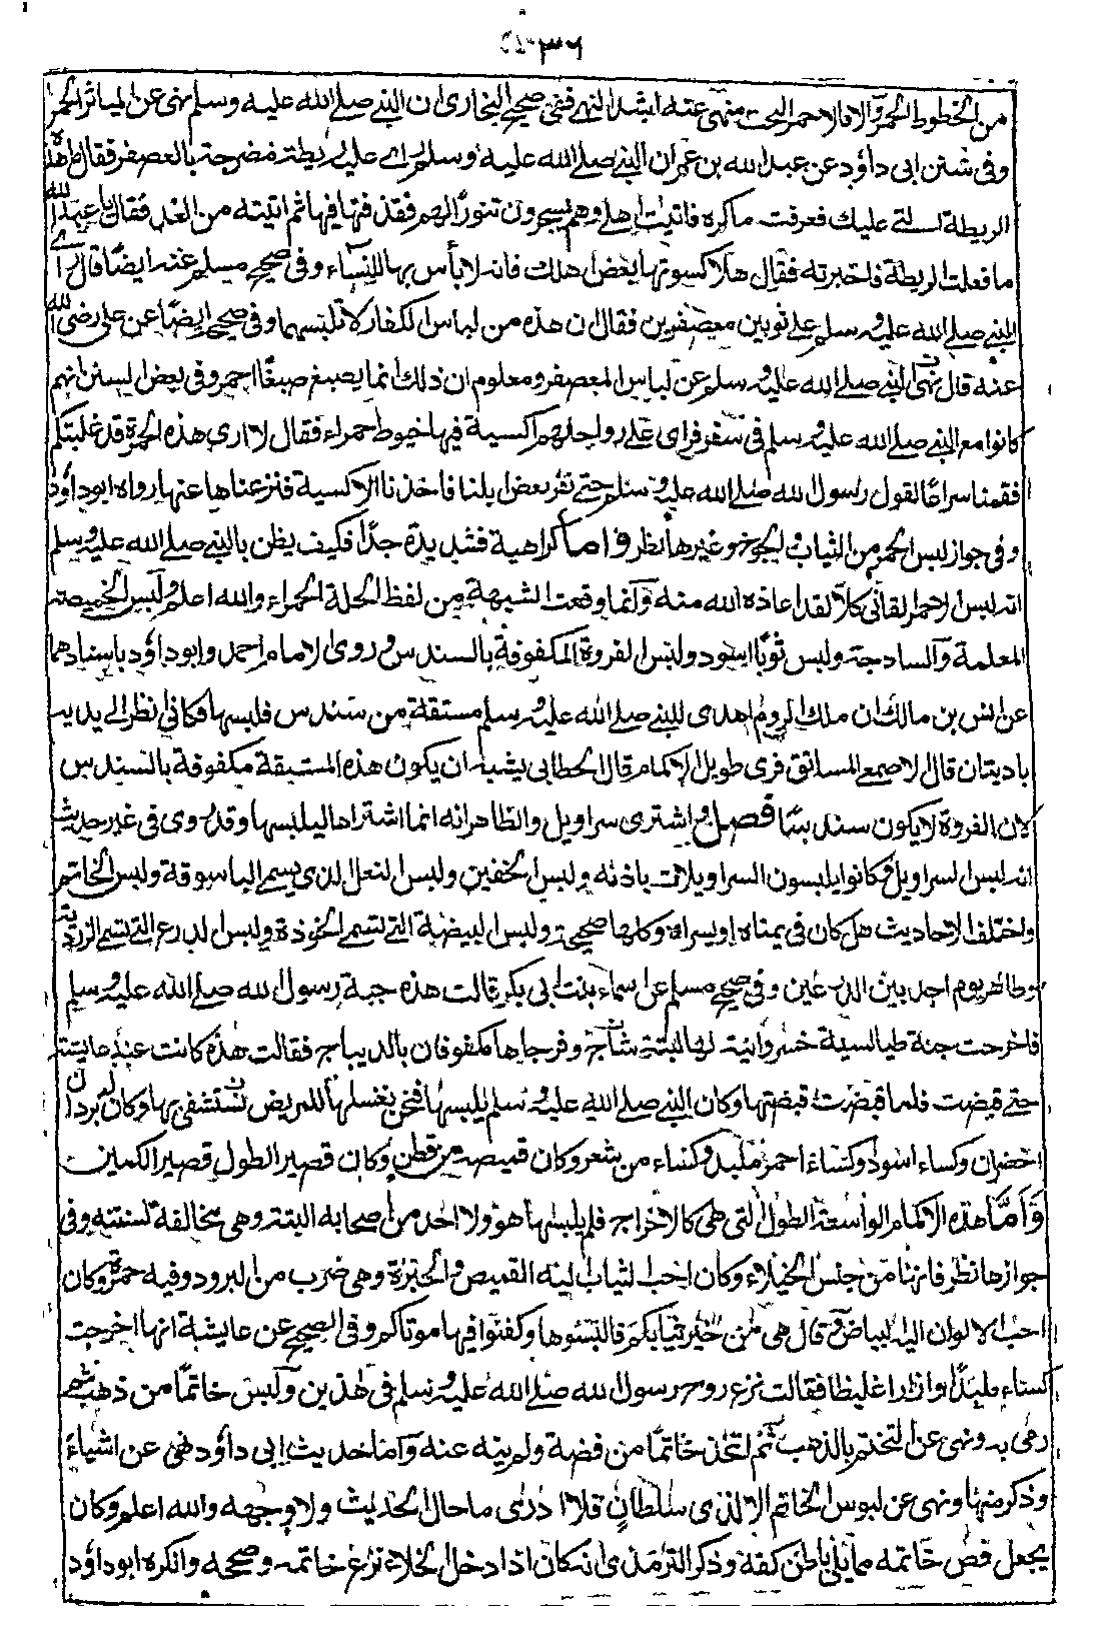 ٣٦
من الخطوط الحمر والا فالاحمر البحت منهى عنه اشد النهى ففى صحيح البخارى ان النبى صلى الله عليه وسلم نهى عن المياثر الحمر
وفى سنن ابى داؤد عن عبد الله بن عمر ان النبى صلى الله عليه وسلم راى عليه ريطة مضرجة بالعصفر فقال ما هذه
الريطة التى عليك فعرفت ما كره فاتيت اهلى وهم يسجرون تنورا لهم فقذفتها فيها ثم اتيته من الغد فقال يا عبد الله
ما فعلت الريطة فاخبرته فقال هلا كسوتها بعض اهلك فانه لا بأس بها للنساء وفى صحيح مسلم عنه ايضًا قال راى
النبى صلى الله عليه وسلم على ثوبين معصفرين فقال ان هذه من لباس الكفار لا تلبسهما وفى صحيحه ايضًا عن على رضى الله
عنه قال نهى النبى صلى الله عليه وسلم عن لباس المعصفر ومعلوم ان ذلك انما يصبغ صبغًا احمر وفى بعض السنن انهم
كانوا مع النبى صلى الله عليه وسلم فى سفر فراى على رواحلهم اكسية فيها خيوط حمراء فقال لا ارى هذه الحمرة قد غلبتكم
فقمنا سراعًا لقول رسول الله صلى الله عليه وسلم حتى نفر بعض ابلنا فاخذنا الاكسية فنزعناها عنها رواه ابو داؤد
وفى جواز لبس الحمر من الثياب والجوخ وغيرها نظر واما كراهية فشديدة جدًا فكيف يظن بالنبى صلى الله عليه وسلم
انه لبس الاحمر القانى كلا لقد اعاذه الله منه وانما وقعت الشبهة من لفظ الحلة الحمراء والله اعلم ولبس الخميصة
المعلمة والساذجة ولبس ثوبًا اسود ولبس الفروة المكفوفة بالسندس وروى الامام احمد وابو داؤد باسنادهما
عن انس بن مالك ان ملك الروم اهدى للنبى صلى الله عليه وسلم مستقة من سندس فلبسها فكانى انظر الى يديه
باديتان قال الاصمعى المساتق فرى طويل الاكمام قال الخطابى يشبه ان يكون هذه المستقة مكفوفة بالسندس
لان الفروة لا يكون سندسًا فصل واشترى سراويل والظاهر انه انما اشتراها ليلبسها وقد روى فى غير حديث
انه لبس السراويل وكانوا يلبسون السراويلات باذنه ولبس الخفين ولبس النعل الذى يسمى الباسوقة ولبس الخاتم
واختلف الاحاديث هل كان فى يمناه او يسراه وكلها صحيحة ولبس البيضة التى تسمى الخوذة ولبس الدرع التى تسمى الزردية
وظاهر يوم احد بين الدرعين وفى صحيح مسلم عن اسماء بنت ابى بكر قالت هذه جبة رسول الله صلى الله عليه وسلم
فاخرجت جبة طيالسية خسروانية لها لبنة وفرجاها مكفوفان بالديباج فقالت هذه كانت عند عايشة
حتى قبضت فلما قبضت قبضتها وكان النبى صلى الله عليه وسلم يلبسها فنحن نغسلها للمريض نستشفى بها وكان له بردان
اخضران وكساء اسود وكساء احمر ملبد وكساء من شعر وكان قميصه من قطن وكان قصير الطول قصير الكمين
وَاَمَّا هذه الاكمام الواسعة الطول التى هى كالاخراج فلم يلبسها هو ولا احد من اصحابه البتة وهى مخالفة لسنته وفى
جوازها نظر فانها من جنس الخيلاء وكان احب الثياب اليه القميص والحبرة وهى ضرب من البرود وفيه حمرة وكان
احب الالوان اليه البياض وقال هى من خير ثيابكم فالبسوها وكفنوا فيها موتاكم وفى الصحيح عن عايشة انها اخرجت
كساء ملبدًا وازارا غليظا فقالت نزع روح رسول الله صلى الله عليه وسلم فى هذين ولبس خاتمًا من ذهب ثم
رمى به ونهى عن التختم بالذهب ثم اتخذ خاتمًا من فضة ولم ينه عنه واما حديث ابى داؤد نهى عن اشياء
وذكر منها ونهى عن لبوس الخاتم الا لذى سلطان فلا ادرى ما حال الحديث ولا وجهه والله اعلم وكان
يجعل فص خاتمه مما يلى باطن كفه وذكر الترمذى انه كان اذا دخل الخلاء نزع خاتمه وصححه وانكره ابو داؤد